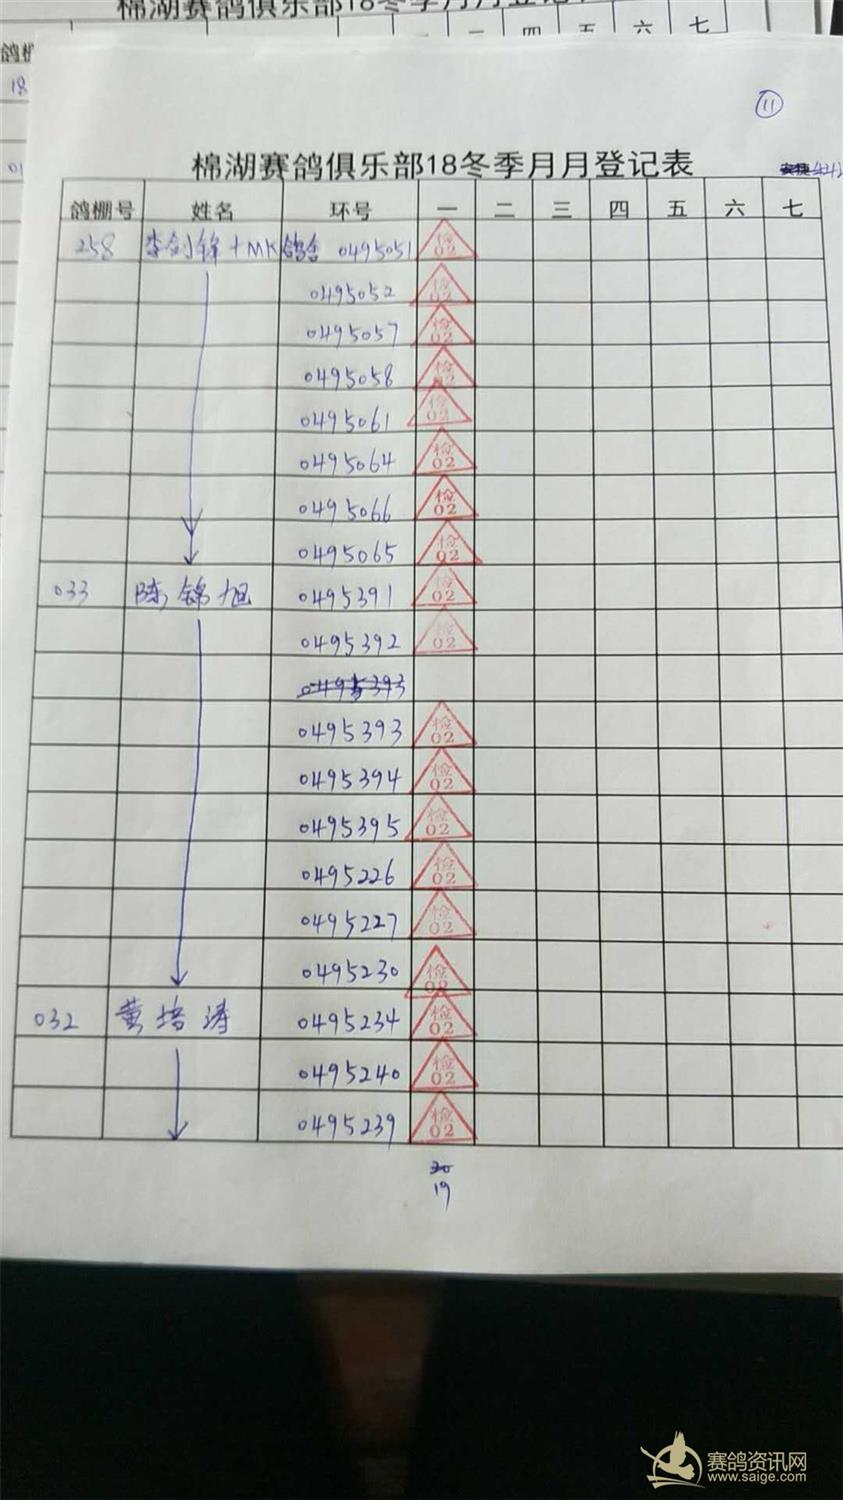 棉湖赛鸽俱乐部18冬季月月登记表
一 二 四 五 六 七
鸽棚
18
01
11
棉湖赛鸽俱乐部18冬季月月登记表
鸽棚号 姓名 环号 一 二 三 四 五 六 七
258 李剑锋+MK鸽舍 0495051 检02
0495052 检02
0495057 检02
0495058 检02
0495061 检02
0495064 检02
0495066 检02
0495065 检02
033 陈锦旭 0495391 检02
0495392 检02
0495393
0495393 检02
0495394 检02
0495395 检02
0495226 检02
0495227 检02
0495230 检02
032 黄培涛 0495234 检02
0495240 检02
0495239 检02
20
19
赛鸽资讯网
www.saige.com